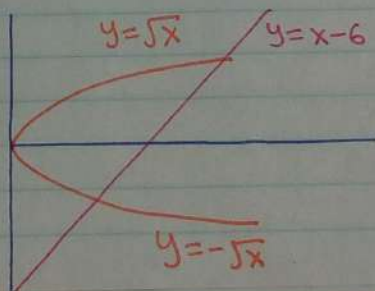 y=√x
y=x-6
y=-√x